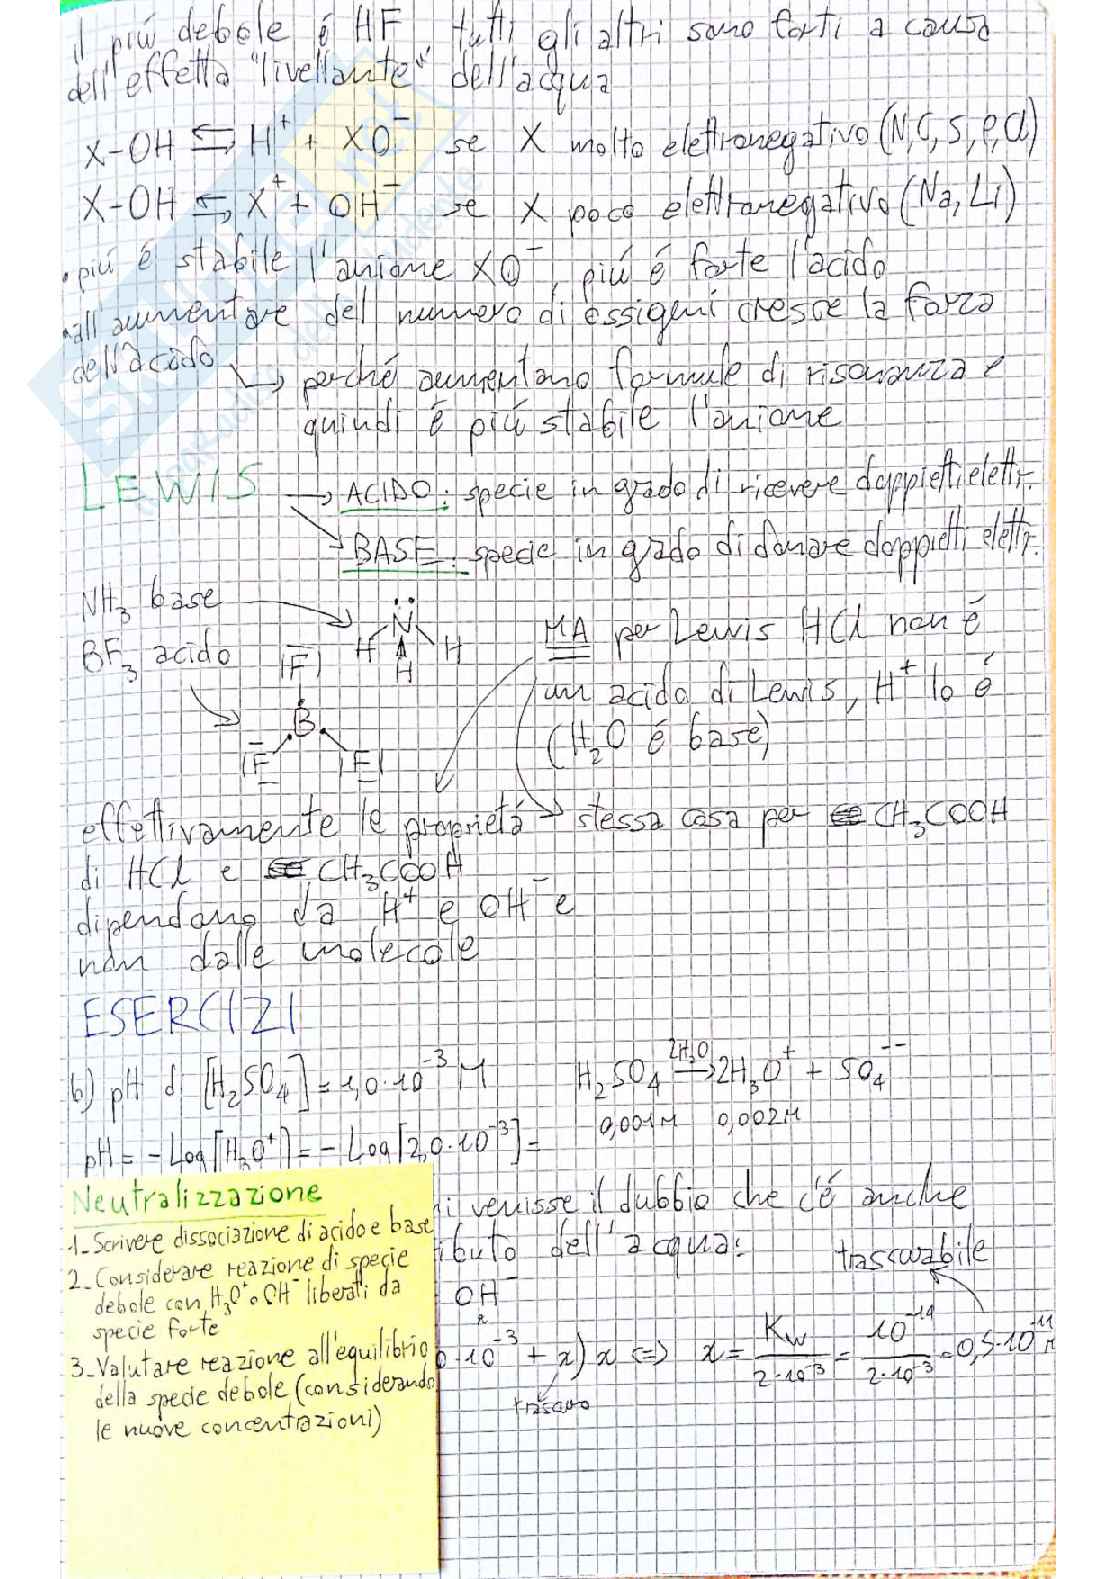 il più debole é HF tutti gli altri sono forti a causa
dell'effetto "livellante" dell'acqua
X-OH ⇆ H⁺ + XO⁻ se X molto elettronegativo (N,C,S,P,Cl)
X-OH ⇆ X⁺ + OH⁻ se X poco elettronegativo (Na, Li)
• più é stabile l'anione XO⁻, più é forte l'acido
• all'aumentare dell numero di ossigeni cresce la forza
dell'acido ↳ perché aumentano formule di risonanza e
quindi é più stabile l'anione
LEWIS → ACIDO: specie in grado di ricevere doppietti elettr.
→ BASE: specie in grado di donare doppietti elettr.
NH₃ base
BF₃ acido
N
H H
H
|F|
B
|F
F|
MA per Lewis HCl non é
un acido di Lewis, H⁺ lo é
(H₂O é base)
→ stessa cosa per CH₃COOH
effettivamente le proprietá
di HCl e CH₃COOH
dipendono da H⁺ e OH⁻ e
non dalle molecole
ESERCIZI
b) pH di [H₂SO₄] = 1,0·10⁻³ M H₂SO₄ →(2H₂O) 2H₃O⁺ + SO₄⁻⁻
0,001M 0,002M
pH = -Log[H₃O⁺] = -Log[2,0·10⁻³] =
venisse il dubbio che c'é anche
ibuto dell'acqua:
trascurabile
OH⁻
0·10⁻³ + x) x ⇔ x = Kw / 2·10⁻³ = 10⁻¹⁴ / 2·10⁻³ = 0,5·10⁻¹¹ M
trascuro
Neutralizzazione
1_ Scrivere dissociazione di acido e base
2_ Considerare reazione di specie
debole con H₃O⁺ o OH⁻ liberati da
specie forte
3_ Valutare reazione all'equilibrio
della specie debole (considerando
le nuove concentrazioni)